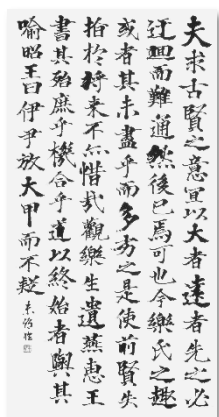 夫求古賢之意宜以大者遠者先之必
迂迴而難通然後已焉可也今樂氏之趣
或者其未盡乎而多劣之是使前賢失
指於將來不亦惜哉觀樂生遺燕惠王
書其殆庶乎機合乎道以終始者與其
喻昭王曰伊尹放大甲而不疑